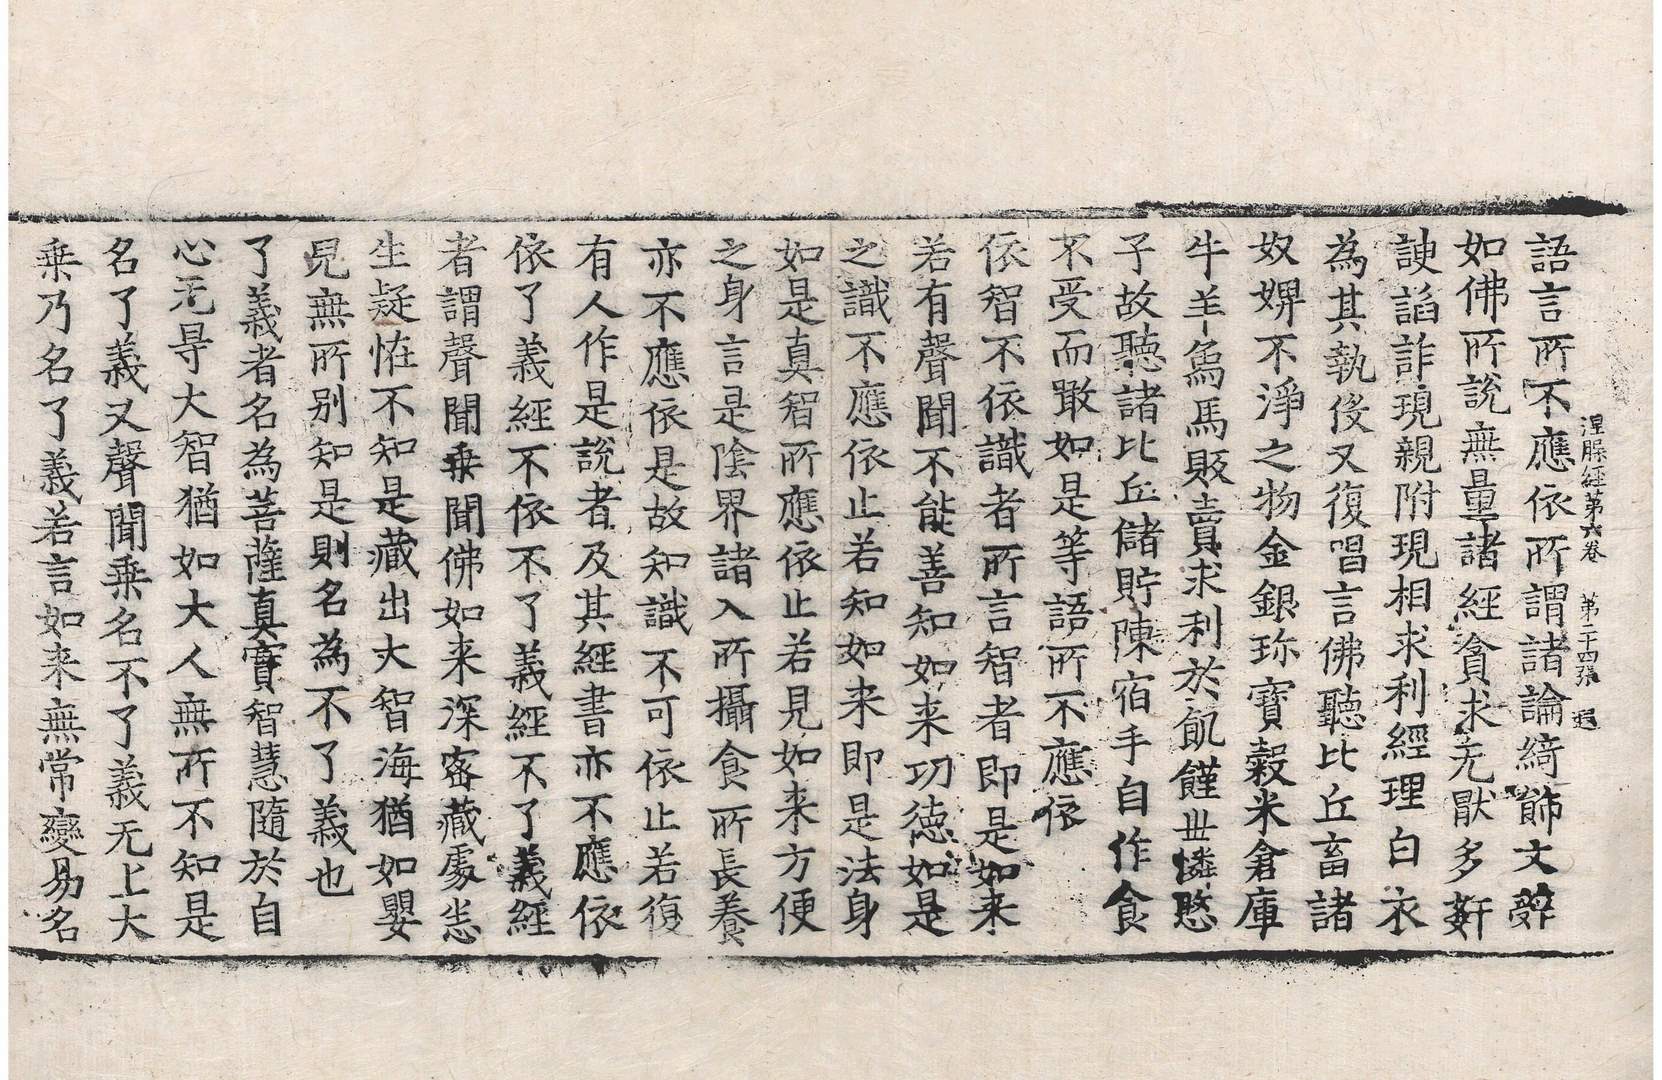 涅槃經第六卷 第二十四張 遐
語言所不應依所謂諸論綺飾文辭
如佛所說無量諸經貪求无猒多姧
諛諂詐現親附現相求利經理白衣
為其執役又復唱言佛聽比丘畜諸
奴婢不淨之物金銀珎寶穀米倉庫
牛羊𤉢馬販賣求利於飢饉丗憐愍
子故聽諸比丘儲貯陳宿手自作食
不受而噉如是等語所不應依
依智不依識者所言智者即是如来
若有聲聞不能善知如来功德如是
之識不應依止若知如来即是法身
如是真智所應依止若見如来方便
之身言是陰界諸入所攝食所長養
亦不應依是故知識不可依止若復
有人作是說者及其經書亦不應依
依了義經不依不了義經不了義經
者謂聲聞乗聞佛如来深密藏處恙
生疑恠不知是藏出大智海猶如嬰
兒無所别知是則名為不了義也
了義者名為菩薩真實智慧隨於自
心无㝵大智猶如大人無所不知是
名了義又聲聞乗名不了義无上大
乗乃名了義若言如来無常變易名